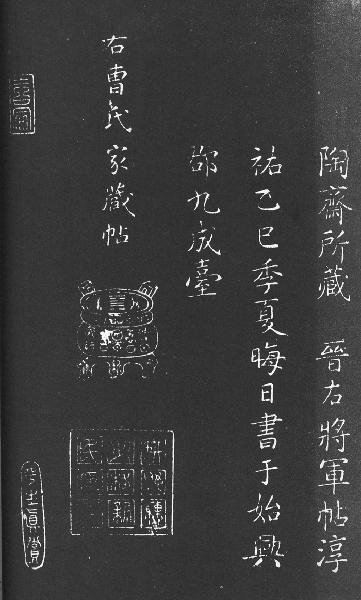 陶齋所藏 晉右將軍帖淳
祐乙巳季夏晦日書于始興
邵九成臺
右曹氏家藏帖